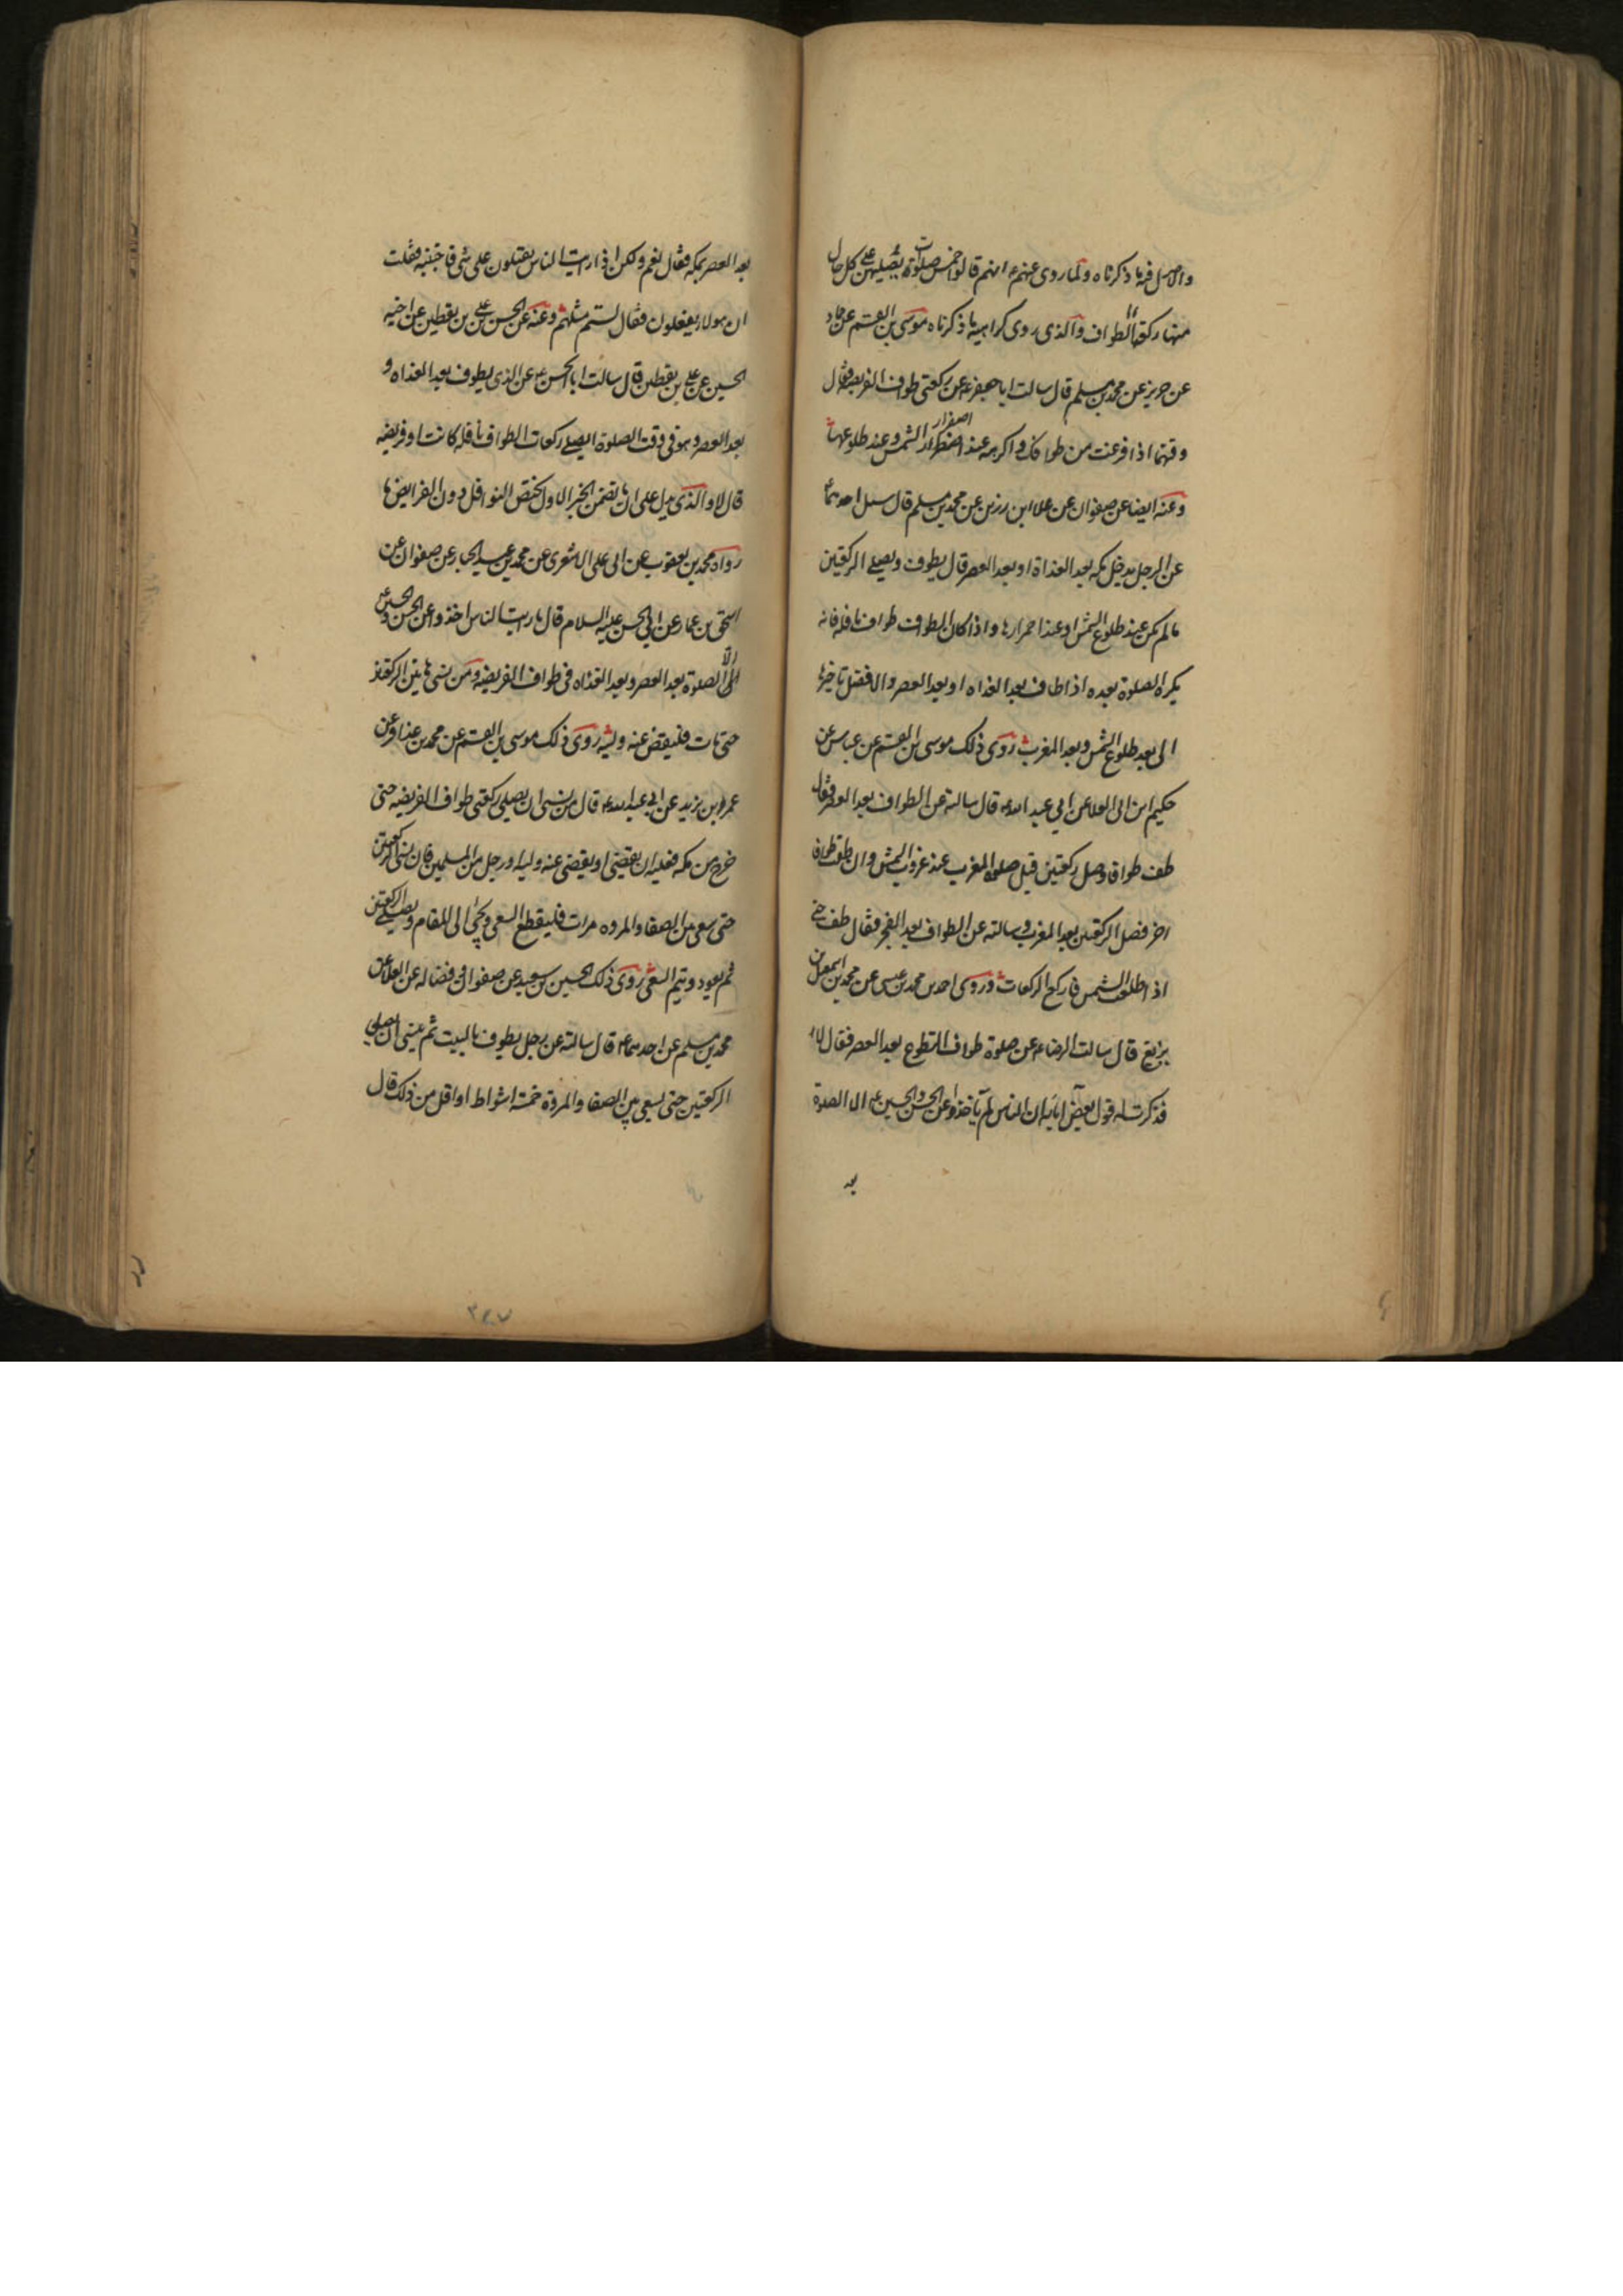 والاصل فيه ما ذكرناه ولما روى عنهم ع انهم قالوا خمس صلوات يصليهن على كل حال
منها ركعتا الطواف والذى روى كراهية ما ذكرناه موسى بن القسم عن حماد
عن حريز عن محمد بن مسلم قال سالت ابا جعفر ع عن ركعتى طواف الفريضه فقال
وقتهما اذا فرغت من طوافك واكرهه عند اصفرار الشمس وعند طلوعها
وعنه ايضا عن صفوان عن علاء ابن رزين عن محمد بن مسلم قال سئل احدهما ع
عن الرجل يدخل مكه بعد الغداة او بعد العصر قال يطوف ويصلى الركعتين
مالم يكن عند طلوع الشمس او عند احمرارها واذا كان الطواف طواف نافله فانه
يكره الصلوة بعده اذا طاف بعد الغداه او بعد العصر والافضل تاخيرها
الى بعد طلوع الشمس وبعد المغرب روى ذلك موسى بن القسم عن عباس عن
حكيم ابن ابى العلا عن ابي عبد الله ع قال سالته عن الطواف بعد العصر فقال
طف طوافا وصل ركعتين قبل صلوة المغرب عند غروب الشمس وان طفت طوافا
اخر فصل الركعتين بعد المغرب وسالته عن الطواف بعد الفجر فقال طف حتى
اذا طلعت الشمس فاركع الركعات وروى احمد بن محمد بن عيسى عن محمد بن اسمعيل بن
بزيع قال سالت الرضا ع عن صلوة طواف التطوع بعد العصر فقال لا
فذكرت له قول بعض ابائه ان الناس لم ياخذوا عن الحسن والحسين ع الا الصلوة
بعد
بعد العصر بمكه فقال نعم ولكن اذا رايت الناس يقبلون على شى فاجتنبه فقلت
ان هولاء يفعلون فقال لستم مثلهم وعنه عن الحسن بن على بن يقطين عن اخيه
الحسين عن على بن يقطين قال سالت ابا الحسن ع عن الذى يطوف بعد الغداه و
بعد العصر وهو فى وقت الصلوة ايصلى ركعات الطواف نافله كانت او فريضه
قال لا والذى يدل على ان ما تضمن الخبر الاول يختص النوافل دون الفرايض ما
رواه محمد بن يعقوب عن ابى على الاشعرى عن محمد بن عبد الجبار عن صفوان عن
اسحق بن عمار عن ابي الحسن عليه السلام قال ما رايت الناس اخذوا عن الحسن والحسين ع
الا الصلوة بعد العصر وبعد الغداه فى طواف الفريضه ومن نسى هاتين الركعتين
حتى مات فليقض عنه وليه روى ذلك موسى بن القسم عن محمد بن عذافر عن
عمر بن يزيد عن ابى عبد الله ع قال من نسى ان يصلى ركعتى طواف الفريضه حتى
خرج من مكه فعليه ان يقضى او يقضى عنه وليه او رجل من المسلمين فان نسى الركعتين
حتى سعى بين الصفا والمروه مرات فليقطع السعى ويجئ الى المقام ويصلى الركعتين
ثم يعود ويتم السعى روى ذلك الحسين بن سعيد عن صفوان وفضاله عن العلا عن
محمد بن مسلم عن احدهما ع قال سالته عن رجل يطوف بالبيت ثم ينسى ان يصلى
الركعتين حتى يسعى بين الصفا والمروة خمسة اشواط او اقل من ذلك قال